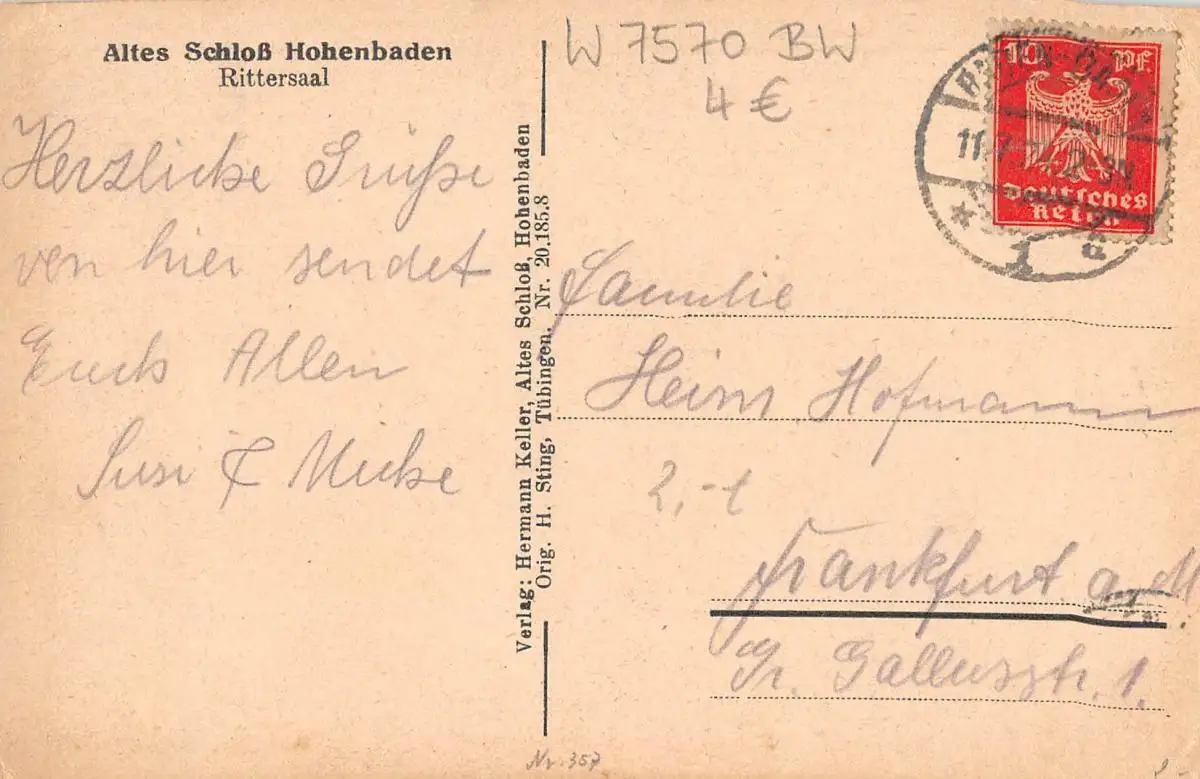 Altes Schloß Hohenbaden
Rittersaal
W 7570 BW
4 €
10 PF
Deutsches
Reich
1 d
Herzliche Grüße
von hier sendet
Euch Allen
Susi &
Verlag: Hermann Keller, Altes Schloß, Hohenbaden
Orig. H. Sting, Tübingen. Nr. 20.185.8
Familie
Hofmann
2,-
Frankfurt a. M
Gr. Gallusstr. 1.
Nr. 357